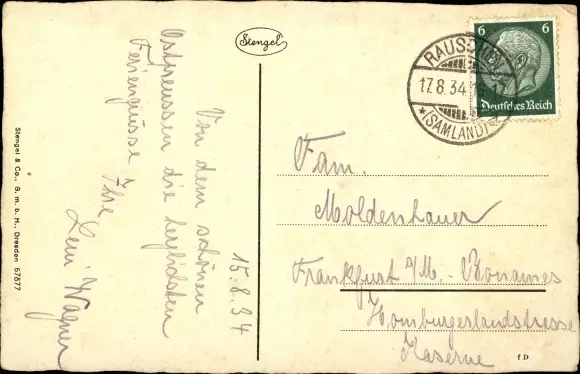 Stengel
15.8.34
Von dem schönen
Ostpreussen die herzlichsten
Feriengrüsse Ihre
Leni Wagner
Stengel & Co., G. m. b. H., Dresden 67877
6 6
Deutsches Reich
RAUSCHEN
17.8.34
*(SAMLAND)
Fam.
Moldenhauer
Frankfurt a/M.-Bonames
Homburgerlandstrasse
Kaserne
f D